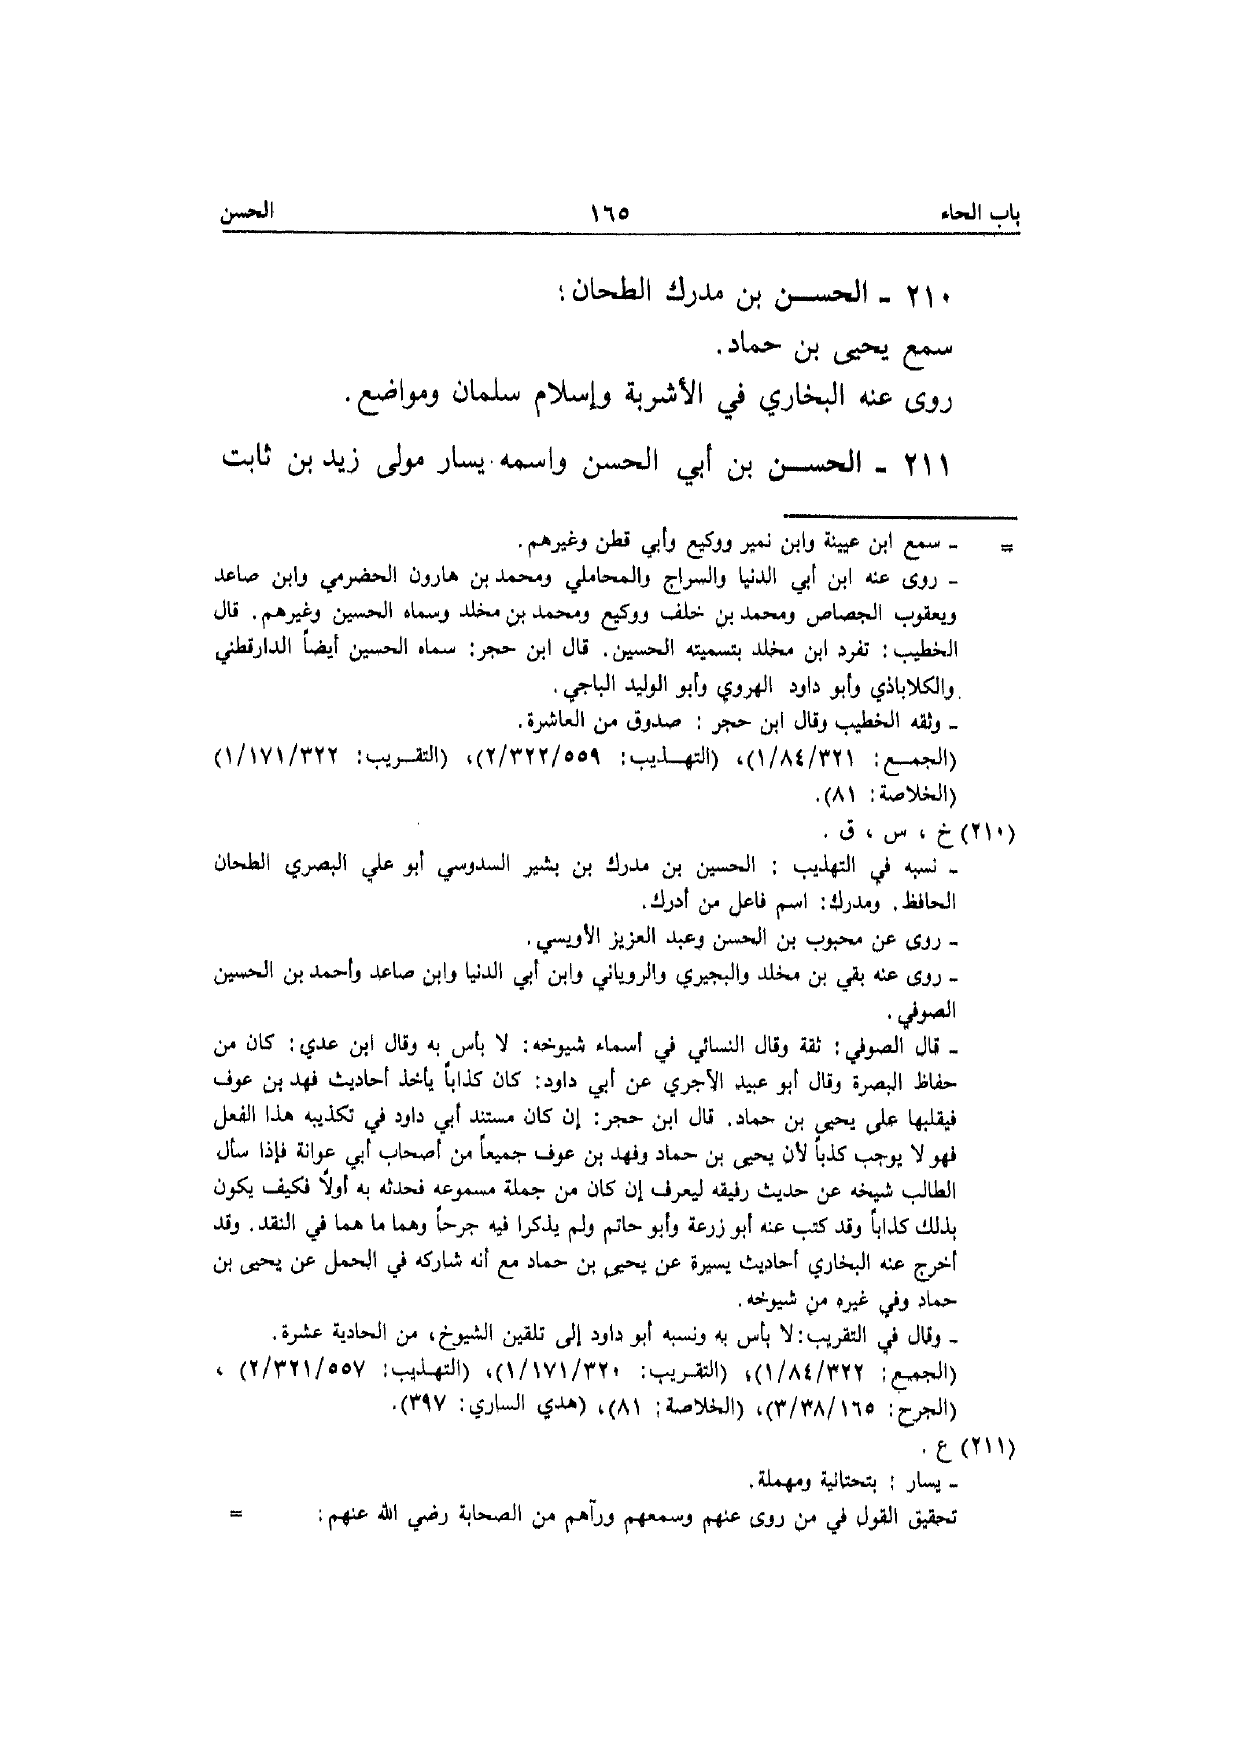 باب الحاء ١٦٥ الحسن
٢١٠ ـ الحســـن بن مدرك الطحان؛
سمع يحيى بن حماد.
روى عنه البخاري في الأشربة وإسلام سلمان ومواضع.
٢١١ ـ الحســـن بن أبي الحسن واسمه يسار مولى زيد بن ثابت
= ـ سمع ابن عيينة وابن نمير ووكيع وأبي قطن وغيرهم.
ـ روى عنه ابن أبي الدنيا والسراج والمحاملي ومحمد بن هارون الحضرمي وابن صاعد
ويعقوب الجصاص ومحمد بن خلف ووكيع ومحمد بن مخلد وسماه الحسين وغيرهم. قال
الخطيب: تفرد ابن مخلد بتسميته الحسين. قال ابن حجر: سماه الحسين أيضاً الدارقطني
والكلاباذي وأبو داود الهروي وأبو الوليد الباجي.
ـ وثقه الخطيب وقال ابن حجر: صدوق من العاشرة.
(الجمـع: ١/٨٤/٣٢١)، (التهـذيب: ٢/٣٢٢/٥٥٩)، (التقـريب: ١/١٧١/٣٢٢)
(الخلاصة: ٨١).
(٢١٠) خ ، س ، ق .
ـ نسبه في التهذيب: الحسين بن مدرك بن بشير السدوسي أبو علي البصري الطحان
الحافظ. ومدرك: اسم فاعل من أدرك.
ـ روى عن محبوب بن الحسن وعبد العزيز الأويسي.
ـ روى عنه بقي بن مخلد والبجيري والروياني وابن أبي الدنيا وابن صاعد وأحمد بن الحسين
الصوفي.
ـ قال الصوفي: ثقة وقال النسائي في أسماء شيوخه: لا بأس به وقال ابن عدي: كان من
حفاظ البصرة وقال أبو عبيد الآجري عن أبي داود: كان كذاباً يأخذ أحاديث فهد بن عوف
فيقلبها على يحيى بن حماد. قال ابن حجر: إن كان مستند أبي داود في تكذيبه هذا الفعل
فهو لا يوجب كذباً لأن يحيى بن حماد وفهد بن عوف جميعاً من أصحاب أبي عوانة فإذا سأل
الطالب شيخه عن حديث رفيقه ليعرف إن كان من جملة مسموعه فحدثه به أولاً فكيف يكون
بذلك كذاباً وقد كتب عنه أبو زرعة وأبو حاتم ولم يذكرا فيه جرحاً وهما ما هما في النقد. وقد
أخرج عنه البخاري أحاديث يسيرة عن يحيى بن حماد مع أنه شاركه في الحمل عن يحيى بن
حماد وفي غيره من شيوخه.
ـ وقال في التقريب: لا بأس به ونسبه أبو داود إلى تلقين الشيوخ، من الحادية عشرة.
(الجمع: ١/٨٤/٣٢٢)، (التقـريب: ١/١٧١/٣٢٠)، (التهـذيب: ٢/٣٢١/٥٥٧) ،
(الجرح: ٣/٣٨/١٦٥)، (الخلاصة: ٨١)، (هدي الساري: ٣٩٧).
(٢١١) ع .
ـ يسار: بتحتانية ومهملة.
تحقيق القول في من روى عنهم وسمعهم ورآهم من الصحابة رضي الله عنهم: =